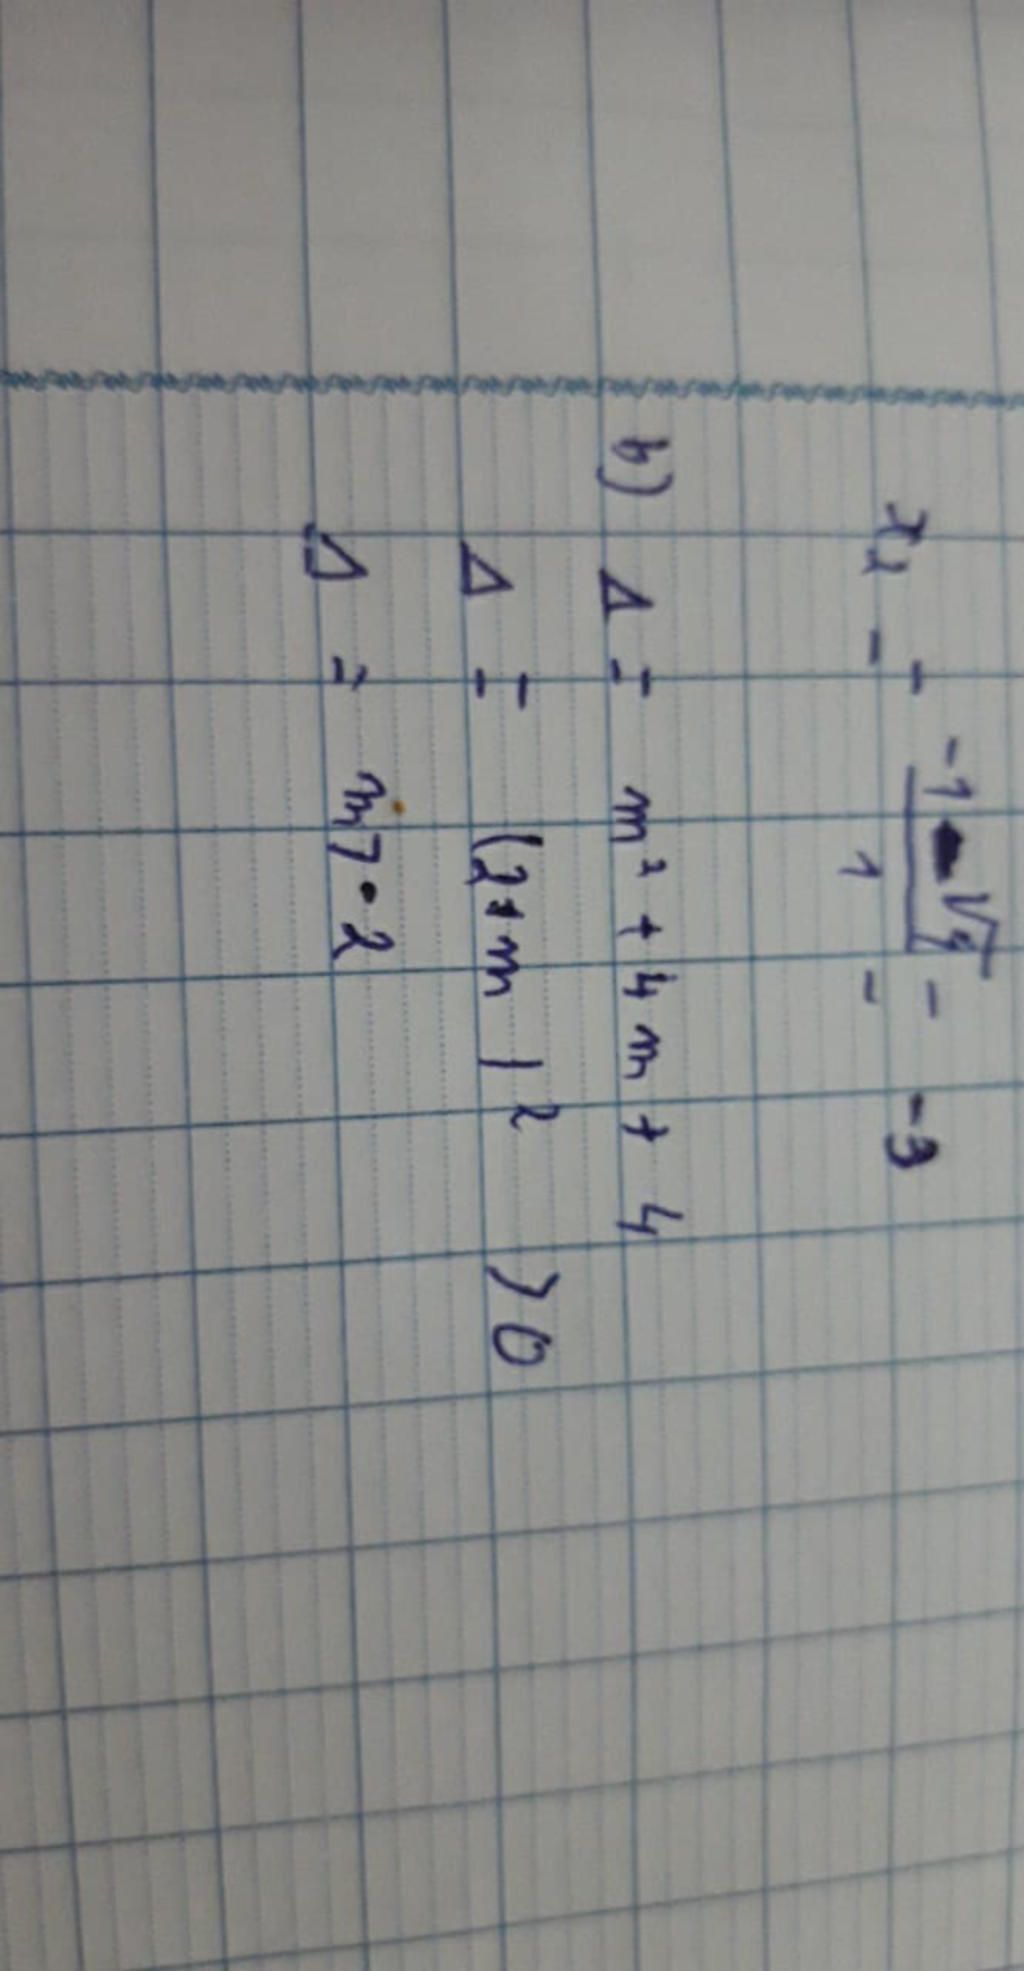 x₂ = -1 - √4 / 1 = -3
b) Δ = m² + 4m + 4
Δ = (2+m)² > 0
Δ = m > -2